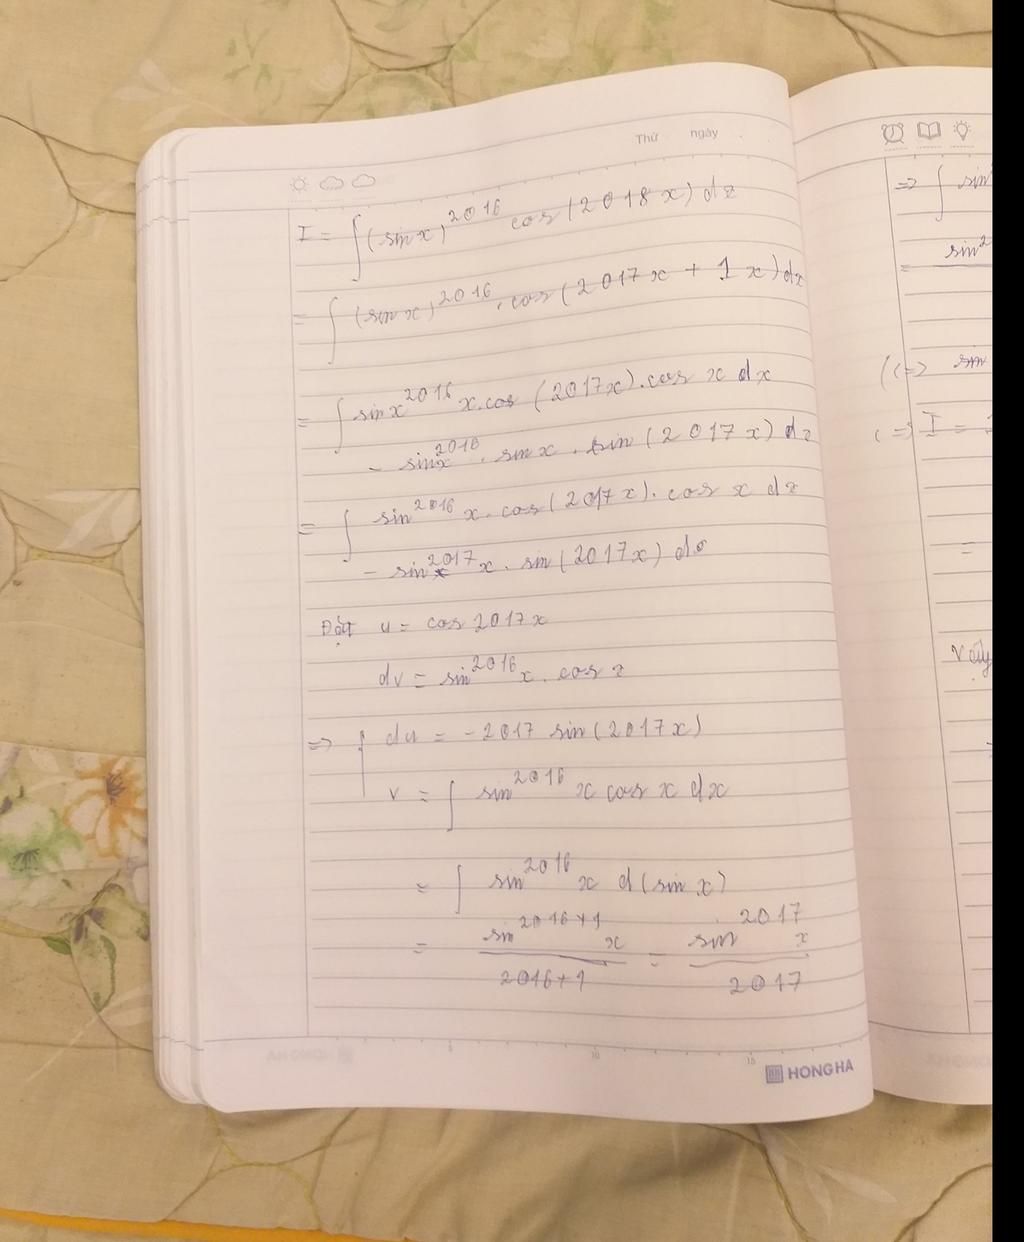 Thứ ngày
I = ∫ (sin x)^2016 cos (2018 x) dx
= ∫ (sin x)^2016 . cos (2017x + 1x) dx
= ∫ sin x^2016 x . cos (2017x) . cos x dx
- sin x^2016 . sin x . sin (2017x) dx
= ∫ sin^2016 x . cos (2017x) . cos x dx
- sin^2017 x . sin (2017x) dx
Đặt u = cos 2017x
dv = sin^2016 x . cos x
=> { du = -2017 sin (2017x)
v = ∫ sin^2016 x cos x dx
= ∫ sin^2016 x d(sin x)
= sin^2016+1 x / 2016+1 = sin^2017 x / 2017
HONG HA
=> ∫ sin
= sin^2
(<=> sin
<=> I =
=
Vậy